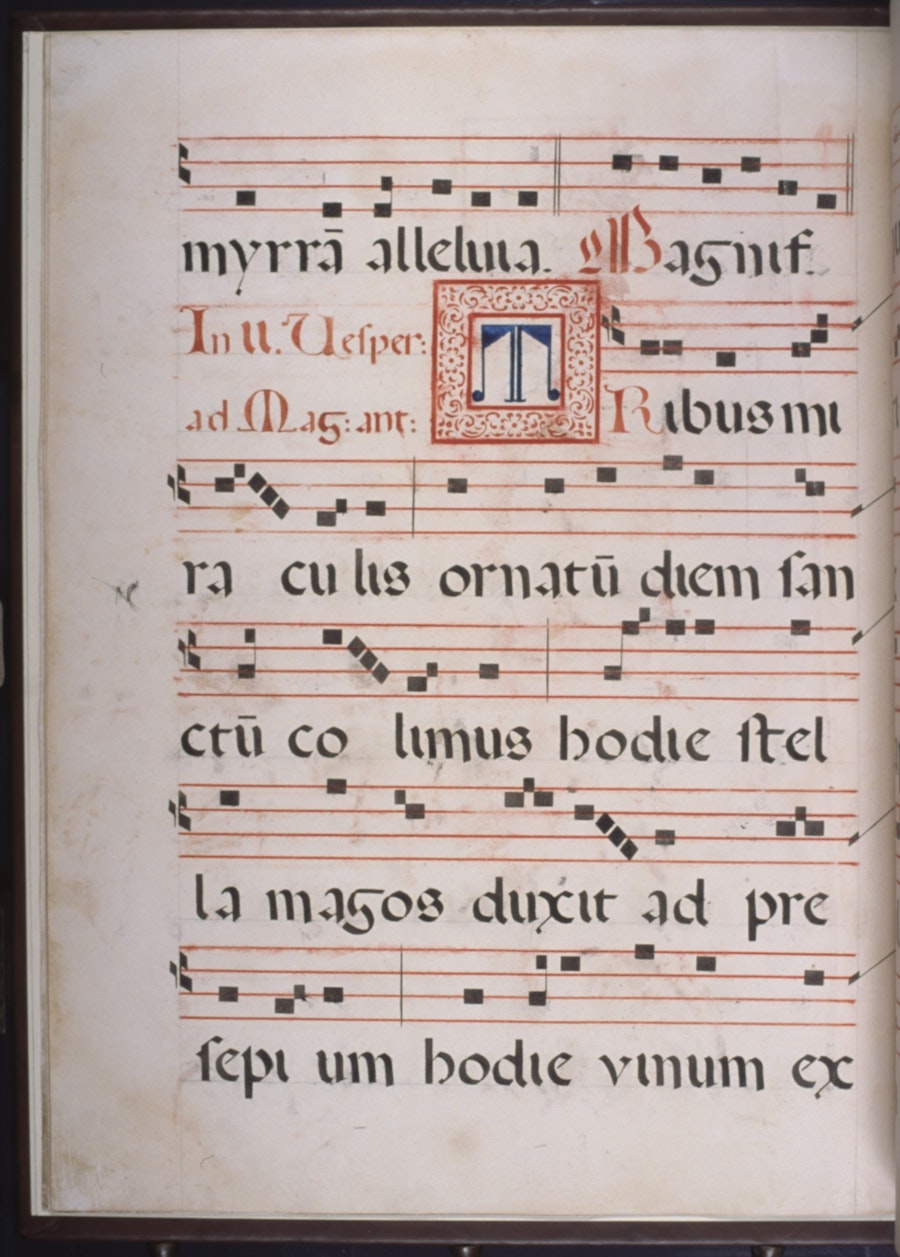 myrrā alleluia. Magnif.
In II. Uesper:
ad Mag: ant: TRibus mi
ra cu lis ornatū diem ſan
ctū co limus hodie ſtel
la magos duxit ad pre
ſepi um hodie vinum ex